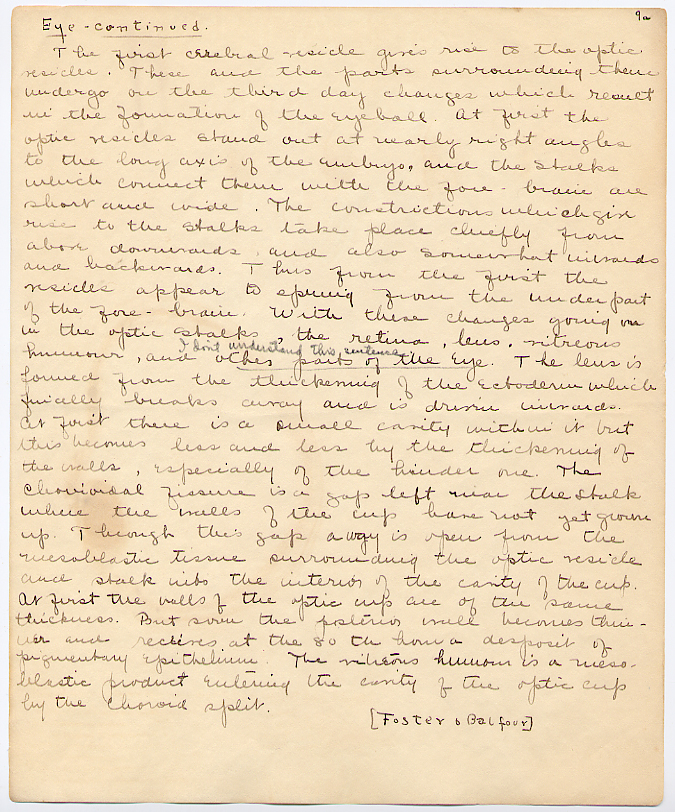 9a
Eye - continued.
The first cerebral vesicle gives rise to the optic
vesicles. These and the parts surrounding them
undergo on the third day changes which result
in the formation of the eyeball. At first the
optic vesicles stand out at nearly right angles
to the long axis of the embryo, and the stalks
which connect them with the fore-brain are
short and wide. The constrictions which give
rise to the stalks take place chiefly from
above downwards, and also somewhat inwards
and backwards. Thus from the first the
vesicles appear to spring from the under part
of the fore-brain. With these changes going on
in the optic stalks, the retina, lens, vitreous
I don't understand this sentence
humour, and other parts of the Eye. The lens is
formed from the thickening of the Ectoderm which
finally breaks away and is driven inwards.
At first there is a small cavity within it but
this becomes less and less by the thickening of
the walls, especially of the hinder one. The
Choroidal fissure is a gap left near the stalk
where the walls of the cup have not yet grown
up. Through this gap a way is open from the
mesoblastic tissue surrounding the optic vesicle
and stalk into the interior of the cavity of the cup.
At first the walls of the optic cup are of the same
thickness. But soon the posterior wall becomes thin-
ner and receives at the 80 th hour a deposit of
pigmentary Epithelium. The vitreous humour is a meso-
blastic product entering the cavity of the optic cup
by the choroid split.
[Foster & Balfour]